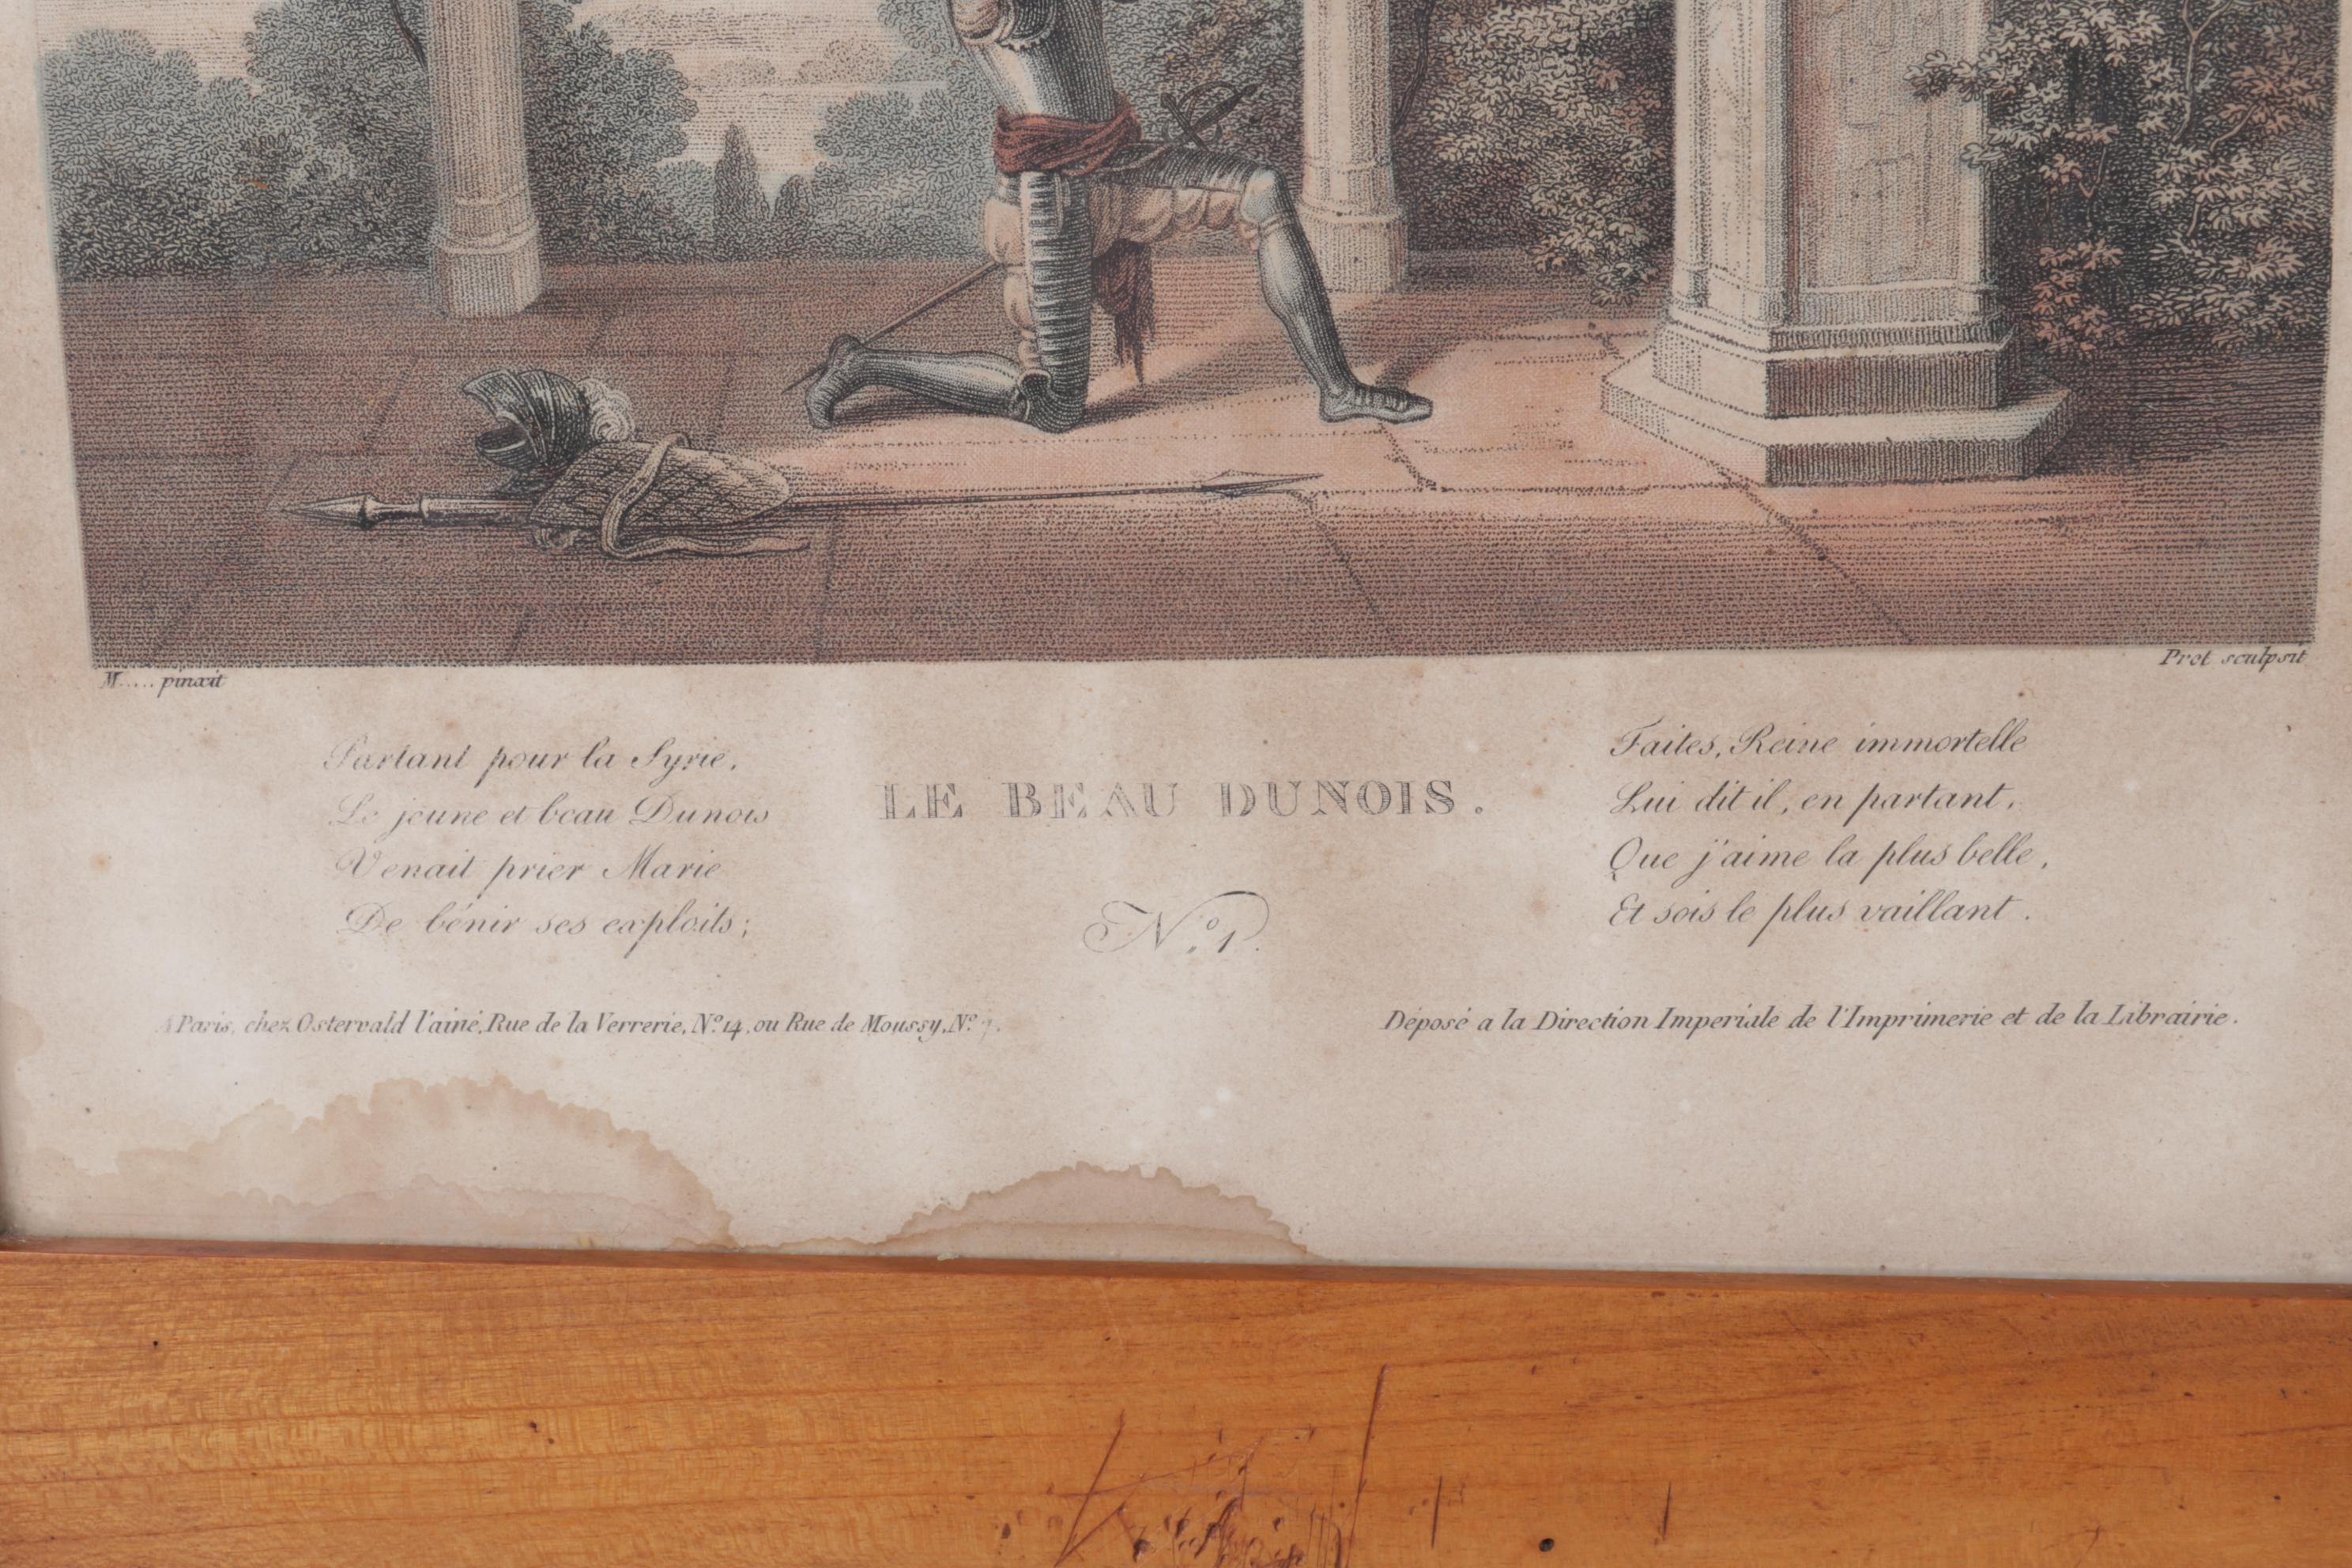 M..... pinxit
Prot sculpsit
Partant pour la Syrie,
Le jeune et beau Dunois
Venait prier Marie
De bénir ses exploits;
LE BEAU DUNOIS.
N.º 1.
Faites, Reine immortelle
Lui dit il, en partant,
Que j'aime la plus belle,
Et sois le plus vaillant.
A Paris, chez Ostervald l'ainé, Rue de la Verrerie, Nº. 14, ou Rue de Moussy, Nº.
Déposé a la Direction Imperiale de l'Imprimerie et de la Librairie.